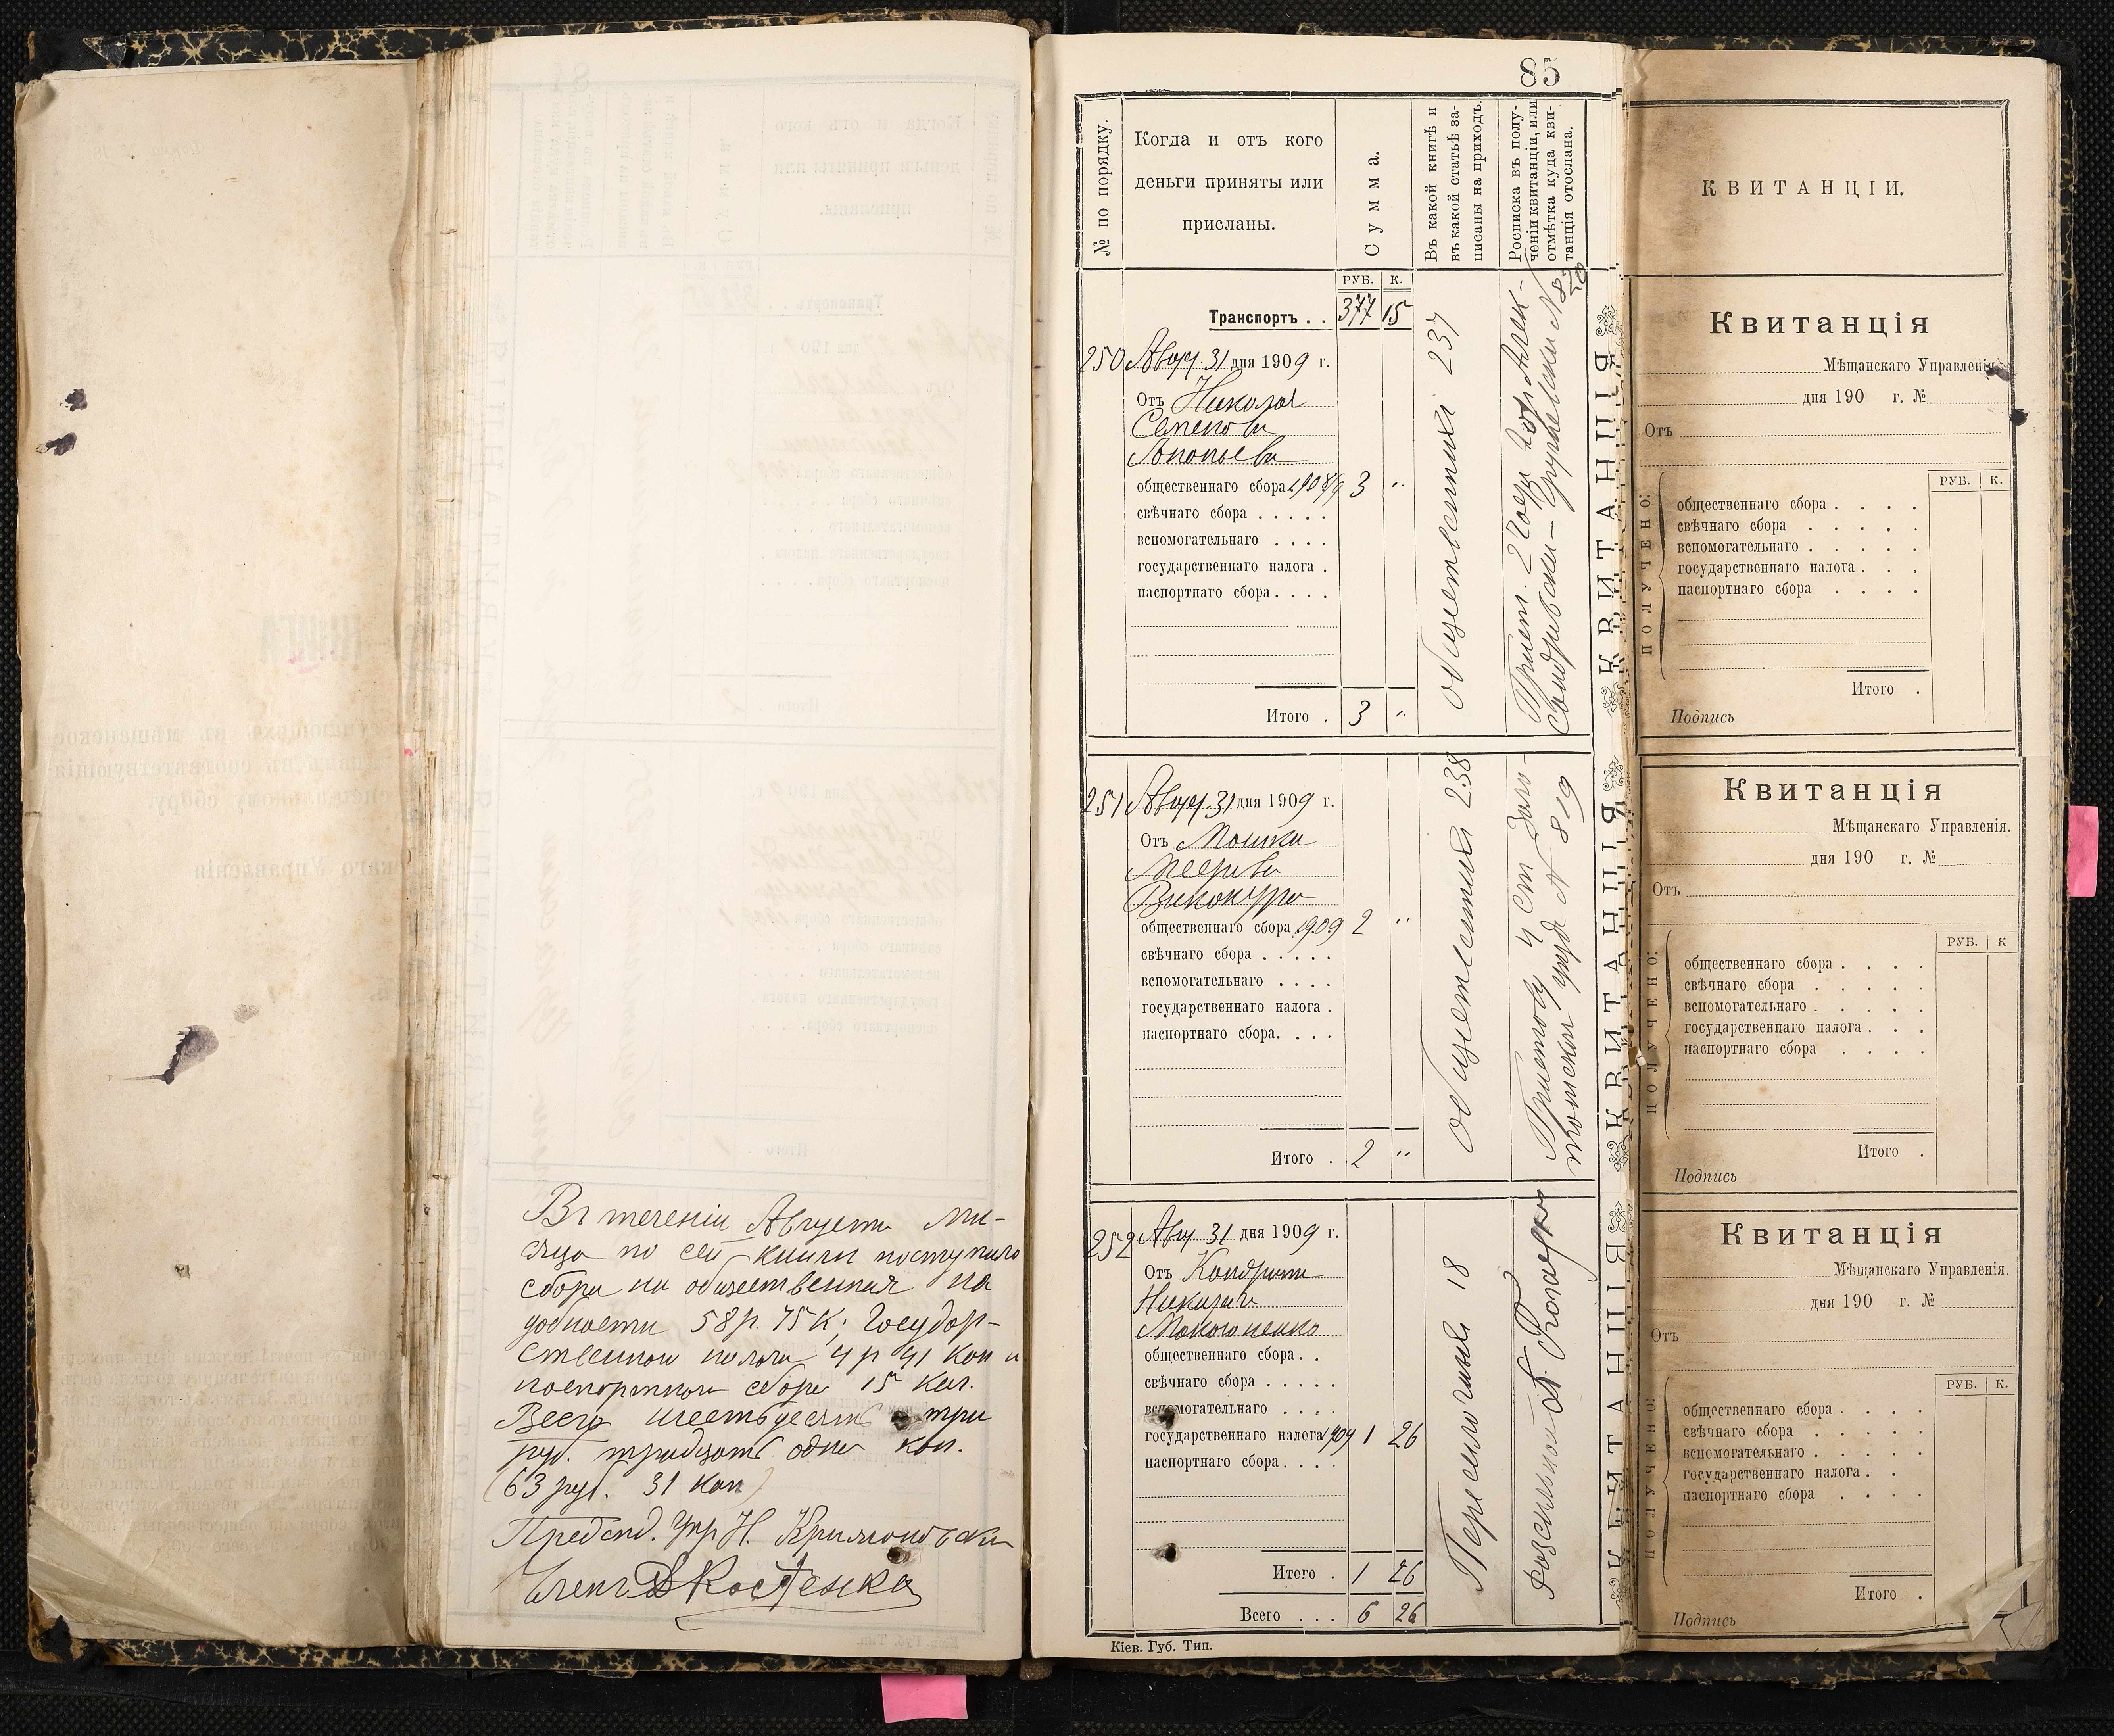 Въ теченіи Августа мѣ-
сяца по сей книги поступило
сбора на общественныя на
добности 58 р. 75 к; Государ-
ственнаго налога 4 р 41 коп и
паспортнаго сбора 15 коп.
Всего шестьдесятъ три
руб. тридцать одна коп.
(63 руб. 31 коп)
Предсѣд. Упр Н.
Членъ Костенко
85
№ по порядку.
Когда и отъ кого
деньги приняты или
присланы.
Сумма.
Въ какой книгѣ и
въ какой статьѣ за-
писаны на приходъ.
Росписка въ полу-
ченіи квитанціи, или
отмѣтка куда кви-
танція отослана.
РУБ. К.
Транспортъ . . 377 15
250 Авгус. 31 дня 1909 г.
Отъ Николая
Семенова
общественнаго сбора 3 "
свѣчнаго сбора . . . . .
вспомогательнаго . . . .
государственнаго налога .
паспортнаго сбора . . . .
Итого . 3 "
общественныхъ 237
Прист. 2
251 Август. 31 дня 1909 г.
Отъ Мошка
Меерова
Винокура
общественнаго сбора 1909 2 "
свѣчнаго сбора . . . . .
вспомогательнаго . . . .
государственнаго налога .
паспортнаго сбора. . . .
Итого . 2 "
общественныя 238
Приставу 4 ст
N 819
252 Авг. 31 дня 1909 г.
Отъ Кондрата
Николаева
Мокогоненко
общественнаго сбора . .
свѣчнаго сбора . . . . .
вспомогательнаго . . . .
государственнаго налога 1909 1 26
паспортнаго сбора . . . .
Итого . 1 26
Всего . . . 6 26
18
Кіев. Губ. Тип.
КВИТАНЦІЯ
КВИТАНЦІЯ
КВИТАНЦІЯ
КВИТАНЦІИ.
Квитанція
Мѣщанскаго Управленія.
дня 190 г. №
Отъ
ПОЛУЧЕНО:
РУБ. К.
общественнаго сбора . . . .
свѣчнаго сбора . . . . .
вспомогательнаго . . . . .
государственнаго налога . . .
паспортнаго сбора . . . .
Итого .
Подпись
Квитанція
Мѣщанскаго Управленія.
дня 190 г. №
Отъ
ПОЛУЧЕНО:
РУБ. К
общественнаго сбора . . . .
свѣчнаго сбора . . . . .
вспомогательнаго . . . . .
государственнаго налога . . .
паспортнаго сбора . . . .
Итого .
Подпись
Квитанція
Мѣщанскаго Управленія.
дня 190 г. №
Отъ
ПОЛУЧЕНО:
РУБ. К.
общественнаго сбора . . . .
свѣчнаго сбора . . . . .
вспомогательнаго . . . . .
государственнаго налога . . .
паспортнаго сбора . . . .
Итого .
Подпись